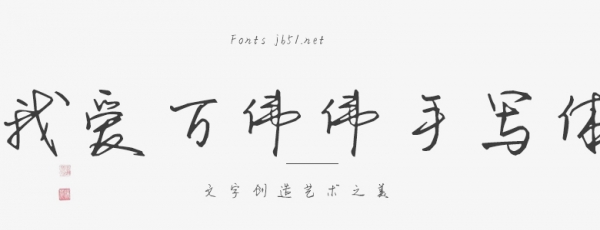 Fonts jb51.net
我爱万伟伟手写体
文字创造艺术之美